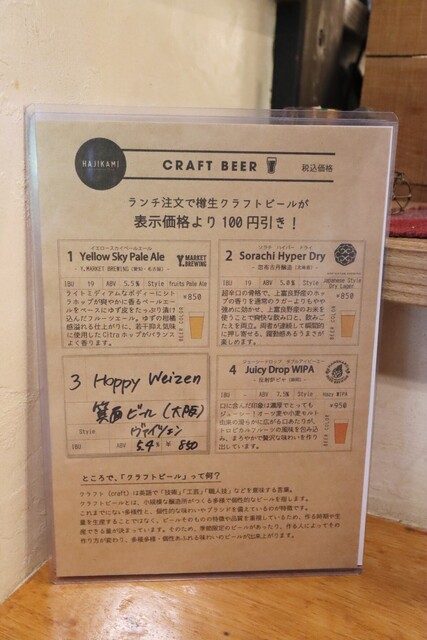 HAJIKAMI
CRAFT BEER
税込価格
ランチ注文で樽生クラフトビールが
表示価格より100円引き！
イエロースカイペールエール
1 Yellow Sky Pale Ale
- Y.MARKET BREWING (愛知・名古屋) -
Y.MARKET BREWING
IBU 19 ABV 5.5% Style fruits Pale Ale
ライトミディアムなボディーにシトラ
ホップが爽やかに香るペールエール
をベースにゆず皮をたっぷり漬け
込んだフルーツエール。ゆずの柑橘
感溢れる仕上がりに、若干抑え気味
に使用したCitraホップがバランス
よく香ります。
¥850
ソラチ ハイパー ドライ
2 Sorachi Hyper Dry
IBU 19 ABV 5.0% Style Japanese Style Dry Lager
超辛口の骨格で、上富良野産のホッ
プの香りを通常のラガーよりもやや
強めに効かせ、上富良野産のお米を
使うことで爽快な飲み口と、飲みご
たえを両立。両者が連続して瞬間的
に押し寄せる、躍動感あるうまさが
楽しめます。
¥850
3 Hoppy Weizen
箕面ビール(大阪)
Style ヴァイツェン
5.4% ¥ 850
ジューシードロップ ダブルアイピーエー
4 Juicy Drop WIPA
- 反射炉ビヤ (静岡) -
IBU - ABV 7.5% Style Hazy WIPA
口に含んだ印象は濃厚でとっても
ジューシー！オーツ麦や小麦モルト
由来の滑らかに広がる口あたりが、
トロピカルフルーツの風味を包み込
み、まろやかで贅沢な味わいを作り
出しています。
¥950
ところで、「クラフトビール」って何？
クラフト (craft) は英語で「技術」「工芸」「職人技」などを意味する言葉。
クラフトビールとは、小規模な醸造所がつくる多様で個性的なビールを指します。
これまでにない多様性と、個性的な味わいやブランドを備えているのが特徴です。
量を生産することではなく、ビールそのものの特徴や品質を重視しているため、作る時期や生
産できる量が決まっています。そのため、季節限定のビールがあったり、作る人によってその
作り方が変わり、多種多様・個性あふれる味わいのビールが出来上がります。